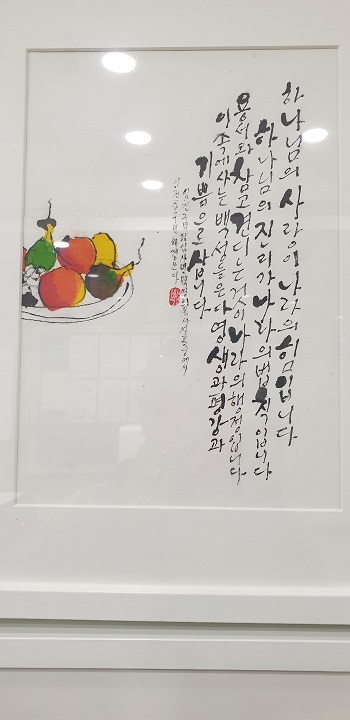 하나님의 사랑이 나라의 힘입니다
하나님의 진리가 나라의 법칙입니다
용서와 참고 견디는 것이 나라의 행정입니다
이 속에 사는 백성들은 다 영생과 평강과
기쁨으로 삽니다